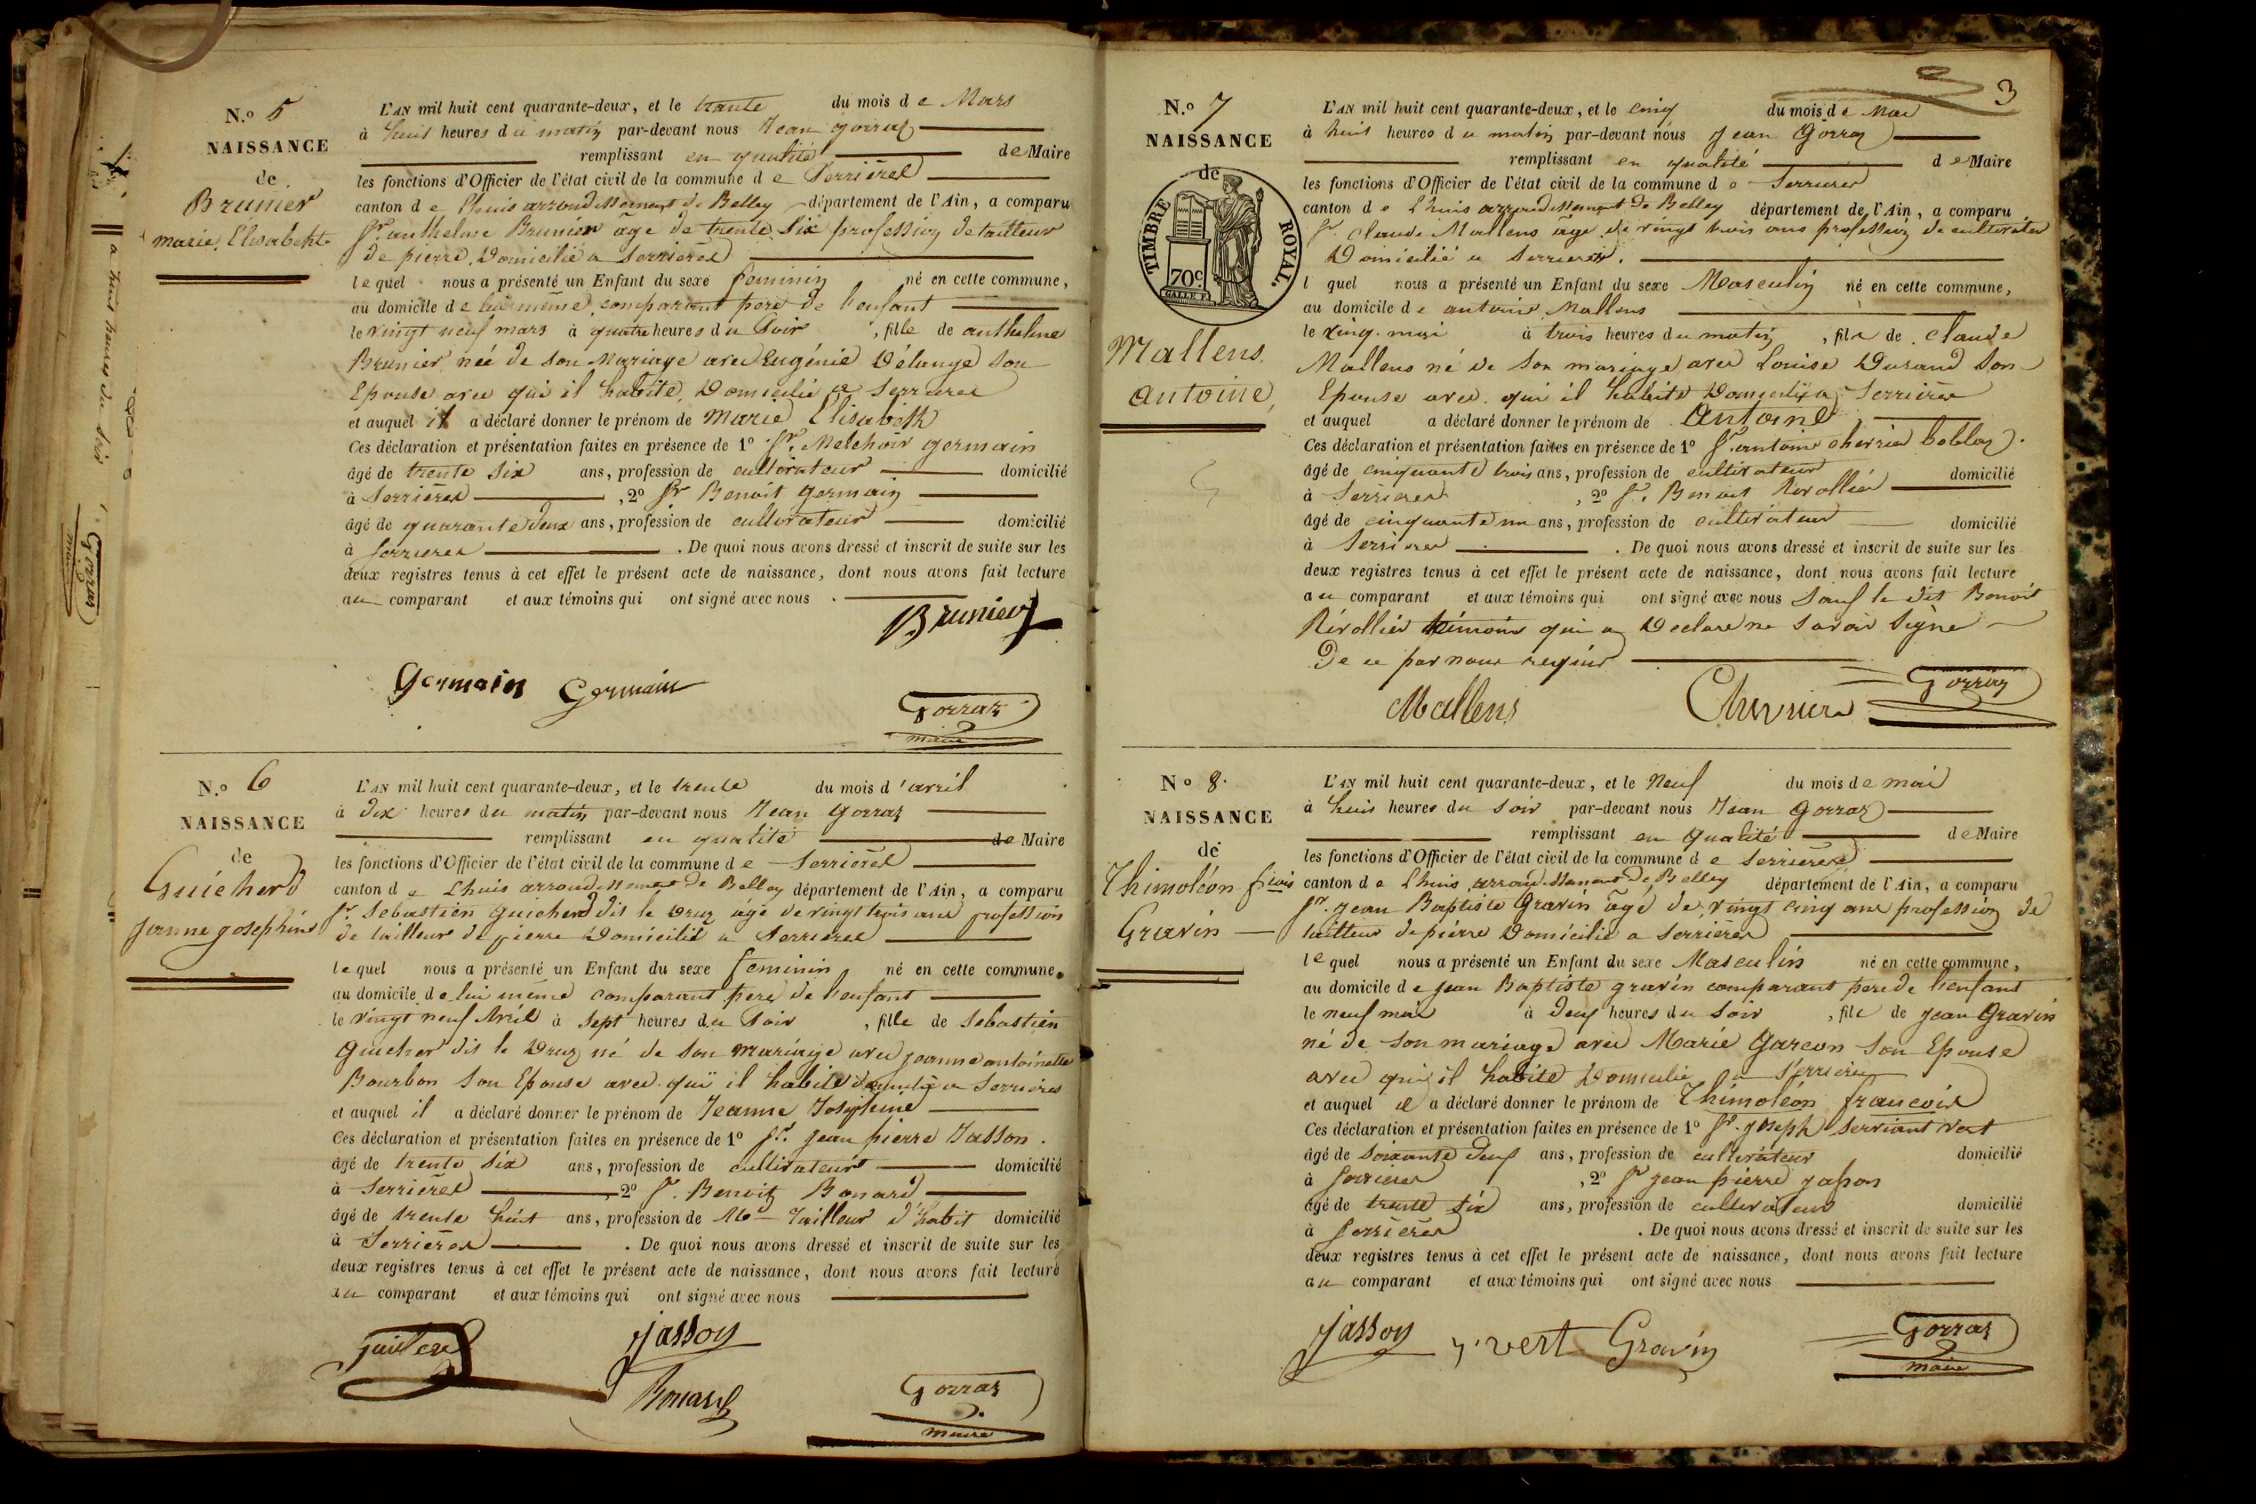 N.º 5
NAISSANCE
de
Brunier
marie Elisabeht
L'AN mil huit cent quarante-deux, et le trante du mois de Mars
à huit heures du matin par-devant nous Jean gorraz
remplissant en qualité de Maire
les fonctions d'Officier de l'état civil de la commune de Serrières
canton de Lhuis arrondissement de Belley département de l'Ain, a comparu
Sr anthelme Brunier âge de trente six profession de tailleur
de pierre Domicilié a Serrières
lequel nous a présenté un Enfant du sexe feminin né en cette commune,
au domicile de lui même comparant pere de l'enfant
le vingt neuf mars à quatre heures du Soir, fille de anthelme
Brunier neé de son Mariage avec Eugénie Délange son
Epouse avec qui il habite, Domicilié a Serrieres
et auquel il a déclaré donner le prénom de Marie Elisabeth
Ces déclaration et présentation faites en présence de 1º Sr. Melchoir germain
âgé de trente six ans, profession de cultivateur domicilié
à Serrières, 2º Sr Benoit germain
âgé de quarante deux ans, profession de cultivateur domicilié
à Serrieres. De quoi nous avons dressé et inscrit de suite sur les
deux registres tenus à cet effet le présent acte de naissance, dont nous avons fait lecture
au comparant et aux témoins qui ont signé avec nous.
Brunier
Germain Germain
Gorraz
maire
N.º 6
NAISSANCE
de
Guicherd
Jeanne josephine
L'AN mil huit cent quarante-deux, et le trente du mois d'avril
à Dix heures du matin par-devant nous Jean Gorraz
remplissant en qualité de Maire
les fonctions d'Officier de l'état civil de la commune de Serrières
canton de Lhuis arrondissement de Belley département de l'Ain, a comparu
Sr. Sebastien guicherd dit le Druz âgé de vingt trois ans profession
de tailleur de pierre Domicilié a Serrieres
lequel nous a présenté un Enfant du sexe feminin né en cette commune,
au domicile de lui même comparant pere de l'enfant
le vingt neuf Avril à sept heures du Soir, fille de Sebastien
guicher dit le Druz né de son mariage avec jeanne antoinette
Bourbon son Epouse avec qui il habite Domicilié a Serrières
et auquel il a déclaré donner le prénom de Jeanne Josephine
Ces déclaration et présentation faites en présence de 1º Sr. Jean pierre Jasson.
âgé de trente six ans, profession de cultivateur domicilié
à Serrières 2º Sr. Benoit Bonard
âgé de trente huit ans, profession de Md Tailleur d'habit domicilié
à Serrieres. De quoi nous avons dressé et inscrit de suite sur les
deux registres tenus à cet effet le présent acte de naissance, dont nous avons fait lecture
au comparant et aux témoins qui ont signé avec nous
Jasson
Bonard
Gorraz
maire
3
N.º 7
NAISSANCE
de
TIMBRE ROYAL.
70c
Mallens
antoine,
L'AN mil huit cent quarante-deux, et le cinq du mois de Mai
à huit heures du matin par-devant nous Jean Gorraz
remplissant en qualité de Maire
les fonctions d'Officier de l'état civil de la commune de Serrieres
canton de Lhuis arrondissement de Belley département de l'Ain, a comparu
Sr. Claude Mallens âge de vingt trois ans profession de cultivateur
Domicilié a Serrieres.
l quel nous a présenté un Enfant du sexe Masculin né en cette commune,
au domicile de antoine Mallens
le cinq mai à trois heures du matin, fils de claude
Mallens né de son mariage avec Louise Durand son
Epouse avec qui il habite Domicilié a Serrières
et auquel a déclaré donner le prénom de Antoine
Ces déclaration et présentation faites en présence de 1º Sr. antoine
âgé de cinquante trois ans, profession de cultivateur domicilié
à Serrieres, 2º Sr. Benoit Rivollier
âgé de cinquante un ans, profession de cultivateur domicilié
à Serrieres. De quoi nous avons dressé et inscrit de suite sur les
deux registres tenus à cet effet le présent acte de naissance, dont nous avons fait lecture
au comparant et aux témoins qui ont signé avec nous Sauf le dit Benoit
Rivollier témoins qui a Declare ne Savoir Signé
De ce par nous requis
Mallens
Gorraz
Nº 8.
NAISSANCE
de
Thimoléon fcois
Gravin
L'AN mil huit cent quarante-deux, et le Neuf du mois de mai
à huit heures du soir par-devant nous Jean Gorraz
remplissant en Qualité de Maire
les fonctions d'Officier de l'état civil de la commune de Serrieres
canton de Lhuis arrondissement de Belley département de l'Ain, a comparu
Sr. Jean Baptiste Gravin âgé de vingt cinq ans profession de
tailleur de pierre Domicilié a Serrières
lequel nous a présenté un Enfant du sexe Masculin né en cette commune,
au domicile de jean Baptiste gravin comparant pere de l'enfant
le neuf mai à Deux heures du Soir, fils de jean Gravin
né de son mariage avec Marie Garcon son Epouse
avec qui il habite Domicilié a Serrieres
et auquel il a déclaré donner le prénom de Thimoléon francois
Ces déclaration et présentation faites en présence de 1º Sr. joseph Serviant vert
âgé de Soixante Deux ans, profession de cultivateur domicilié
à Serrieres, 2º Sr jean pierre jasson
âgé de trente six ans, profession de cultivateur domicilié
à Serrieres. De quoi nous avons dressé et inscrit de suite sur les
deux registres tenus à cet effet le présent acte de naissance, dont nous avons fait lecture
au comparant et aux témoins qui ont signé avec nous
Jasson vert Gravin
Gorraz
maire